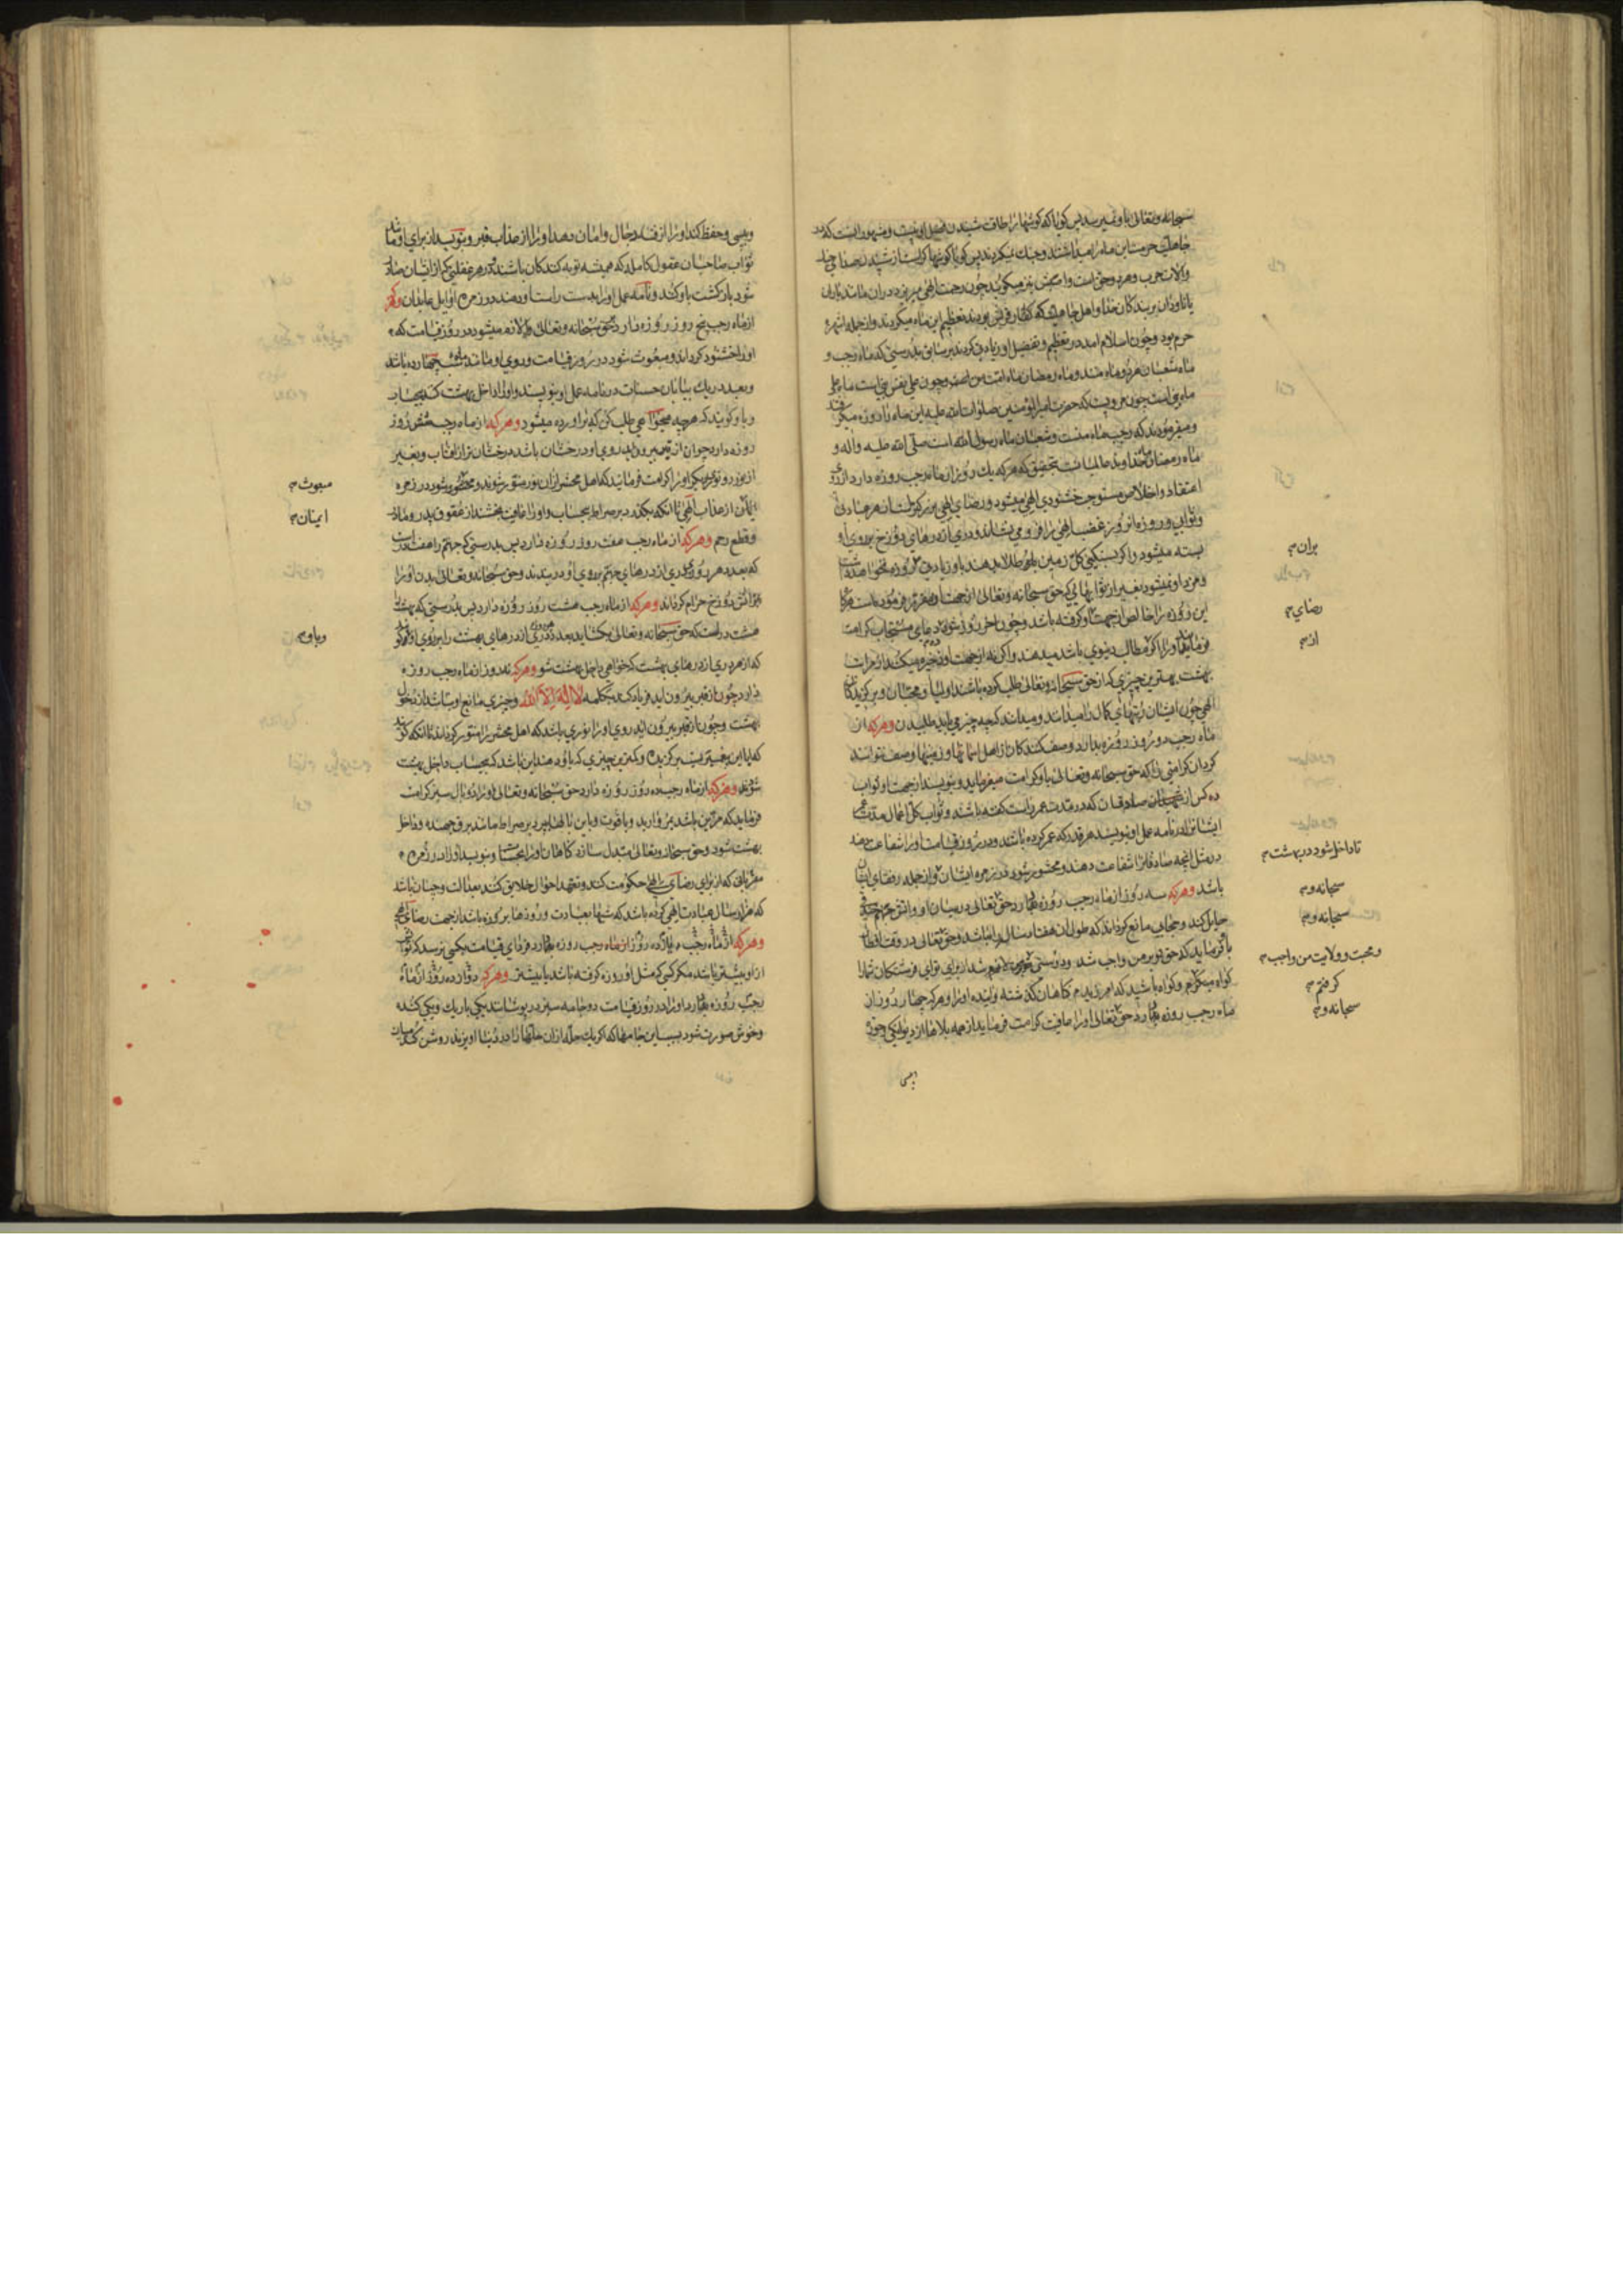 سبحانه وتعالی باو نمیرسد پس کویا که کوشها را طاقت شنیدن فضل او نیست و مشهور انست که در
جاهلیت حرمت این ماه را میداشتند و جنك نمیکردند پس کویا کوشها کر است از شنیدن صدای
والات حرب و هم در وجوه است واصبّش نیز میکویند چون رحمت الهی میریزد در ان مانند باران
یا ناودان بر بندکان خدا و اهل جاهلیت که کفار قریش بودند تعظیم این ماه میکردند و از جمله اشهر
حرم بود و چون اسلام امد در تعظیم و تفضیل او زیادتی کردند بر سابق بدرستی که ماه رجب و
ماه شعبان هر دو ماه منند و ماه رمضان ماه امت من است و چون علی نفس نبی است ماه علی
ماه نبی است چون مرویست که حضرت امیر المؤمنین صلوات الله علیه این ماه را روزه میکرفتند
و میفرمودند که رجب ماه منست و شعبان ماه رسول الله است صلی الله علیه واله و
ماه رمضان ماه خداوند عالمیانست بتحقیق که هر که یك روز از ماه رجب روزه دارد از روی
اعتقاد و اخلاص مستوجب خشنودی الهی میشود و رضای الهی بزرکتر است از هر عبادتی
و ثوابی و روزه آن روز غضب الهی را فرو می نشاند و دری از درهای دوزخ بر روی او
بسته میشود و اکر بسنکینی کل زمین طلا بدهند باو زیادتی
و مزد او نمیشود بغیر از ثوابهائی که حق سبحانه وتعالی از جهت او مقرر فرموده است هرکاه
این روزه را خالص از جهت او کرفته باشد و چون اخر روز شود دعای مستجاب کرامت
فرماید او را اکر مطالب دنیوی باشد میدهند و اکر نه از جهت او ذخیره میکند از مراتب
بهشت بهترین چیزی که از حق سبحانه وتعالی طلب کرده باشند اولیا و محبان و برکزیدکان
الهی چون ایشان رتبهای کمال را میدانند و میدانند که چه چیز می باید طلبیدن وهرکه از
ماه رجب دو روز روزه بدارد وصف کنندکان از اهل اسمانها و زمینها وصف نتوانند
کردن کرامتی را که حق سبحانه وتعالی باو کرامت میفرماید و بنویسد از جهت او ثواب
ده کس از صادقان که در مدت عمر راست کفته باشند و ثواب کل اعمال مدت عمر
ایشانرا در نامه عمل او بنویسد هر قدر که عمر کرده باشند و در روز قیامت او را شفاعت دهند
در مثل انچه صادقانرا شفاعت دهند و محشور شود در زمره ایشان و از جمله رفقای ایشان
باشد وهرکه سه روز از ماه رجب روزه بدارد حق تعالی در میان او و اتش جهنم خندقی
حایل کند و حجابی مانع کرداند که طول ان هفتاد سال راه باشد و حق تعالی در وقت افطار
باو فرماید که حق تو بر من واجب شد و دوستی
کواه میکیرم و کواه باشید که امرزیدم کاهان کذشته و اینده او را و هر که چهار روز از
ماه رجب روزه بدارد حق تعالی او را عافیت کرامت فرماید از همه بلاها از دیوانکی و خوره
وپیسی
بران
رضای
از
تا داخل شود در بهشت
سبحانه و
سبحانه و
و محبت و ولایت من واجب
کرفتم
سبحانه و
وپیسی و حفظ کند او را از فتنه دجال و امان دهد او را از عذاب قبر و بنویسد از برای او مانند
ثواب صاحبان عقول کامله که همیشه توبه کنندکان باشند که در هر غفلتی که از ایشان صادر
شود بازکشت باو کنند و نامه عمل او را بدست راست او دهند در زمره اوایل عابدان وهرکه
از ماه رجب پنج روز روزه دارد حق سبحانه وتعالی را لازم میشود در روز قیامت که
او را خشنود کرداند و مبعوث شود در روز قیامت و روی او مانند ماه شب چهارده باشد
و بعدد ریك بیابان حسنات در نامه عمل او بنویسند و او را داخل بهشت کند بیحساب
و باو کویند که هر چه میخواهی طلب کن که براورده میشود وهرکه از ماه رجب شش روز
روزه دارد چون از قبر بیرون اید روی او درخشان باشد درخشان تر از افتاب و بغیر
از نور رو نوری دیکر او را کرامت فرمایند که اهل محشر از ان نور منور شوند و محشور شود در زمره
ایمن از عذاب الهی تا انکه بکذرد بر صراط بیحساب و او را عافیت بخشند از عقوق پدر و مادر
و قطع رحم وهرکه از ماه رجب هفت روز روزه دارد پس بدرستی که جهنم را هفت در است
که بعدد هر روزی دری از درهای جهنم بر روی او در بندند و حق سبحانه وتعالی بدن او را
بر اتش دوزخ حرام کرداند وهرکه از ماه رجب هشت روز روزه دارد پس بدرستی که بهشت را
هشت در است که حق سبحانه وتعالی بکشاید بعدد هر روزی دری از درهای بهشت را بر روی او
که از هر دری از درهای بهشت که خواهی داخل بهشت شو وهرکه نه روز از ماه رجب روزه
دارد چون از قبر بیرون اید فریاد کند بکلمه لا اله الا الله و چیزی مانع او نباشد از دخول
بهشت و چون از قبر بیرون اید روی او را نوری باشد که اهل محشر را منور کرداند تا انکه کویند
که ایا این پیغمبریست برکزیده و کمترین چیزی که باو دهند این باشد که بیحساب داخل بهشت
شود وهرکه از ماه رجب ده روز روزه دارد حق سبحانه وتعالی او را دو بال سبز کرامت
فرماید که مزین باشد بمروارید و یاقوت و باین بالها بپرد بر صراط مانند برق جهنده و داخل
بهشت شود و حق سبحانه وتعالی مبدل سازد کاهان او را بحسنات و بنویسد او را در زمره
مقربانی که از برای رضای الهی حکومت کنند و تعهد احوال خلایق کنند بعدالت و چنان باشد
که هزار سال عبادت الهی کرده باشد که شبها بعبادت و روزها بروزه باشد از جهت رضای الهی
وهرکه از ماه رجب یازده روز از ماه رجب روزه بدارد فردای قیامت بکسی نرسد که ثواب
از او بیشتر باشد مکر کسی که مثل او روزه کرفته باشد یا بیشتر وهرکه دوازده روز از ماه
رجب روزه بدارد او را در روز قیامت دو جامه سبز در پوشانند یکی باریك و یکی کنده
و خوش صورت شود بسبب این جامها که اکر یك حله از ان حلها را در دنیا اویزند روشن کند میان
مبعوث
ایمنان
وباو